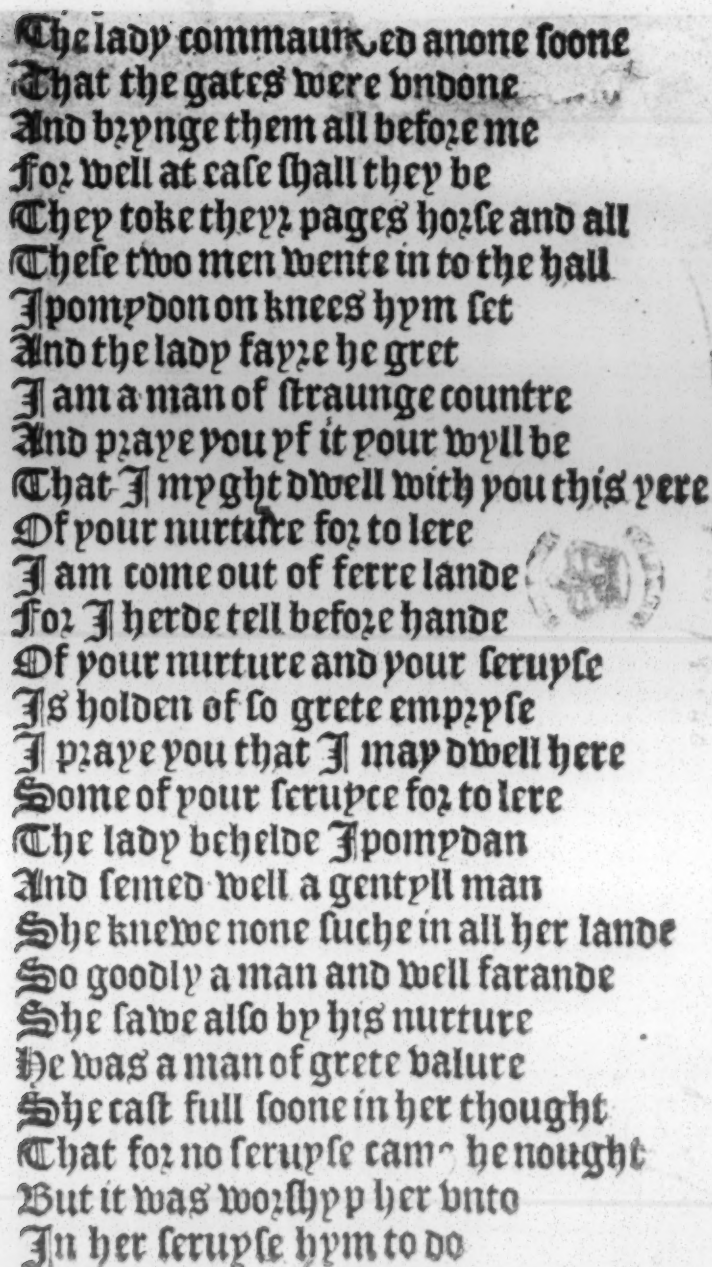 The lady commaunded anone soone
That the gates were vndone
And brynge them all before me
For well at ease shall they be
They toke theyr pages horse and all
These two men wente in to the hall
Ipomydon on knees hym set
And the lady fayre he gret
I am a man of straunge countre
And praye you yf it your wyll be
That I myght dwell with you this yere
Of your nurture for to lere
I am come out of ferre lande
For I herde tell before hande
Of your nurture and your seruyse
Is holden of so grete empryse
I praye you that I may dwell here
Some of your seruyce for to lere
The lady behelde Ipomydan
And semed well a gentyll man
She knewe none suche in all her lande
So goodly a man and well farande
She sawe also by his nurture
He was a man of grete valure
She cast full soone in her thought
That for no seruyse came he nought
But it was worshyp her vnto
In her seruyse hym to do